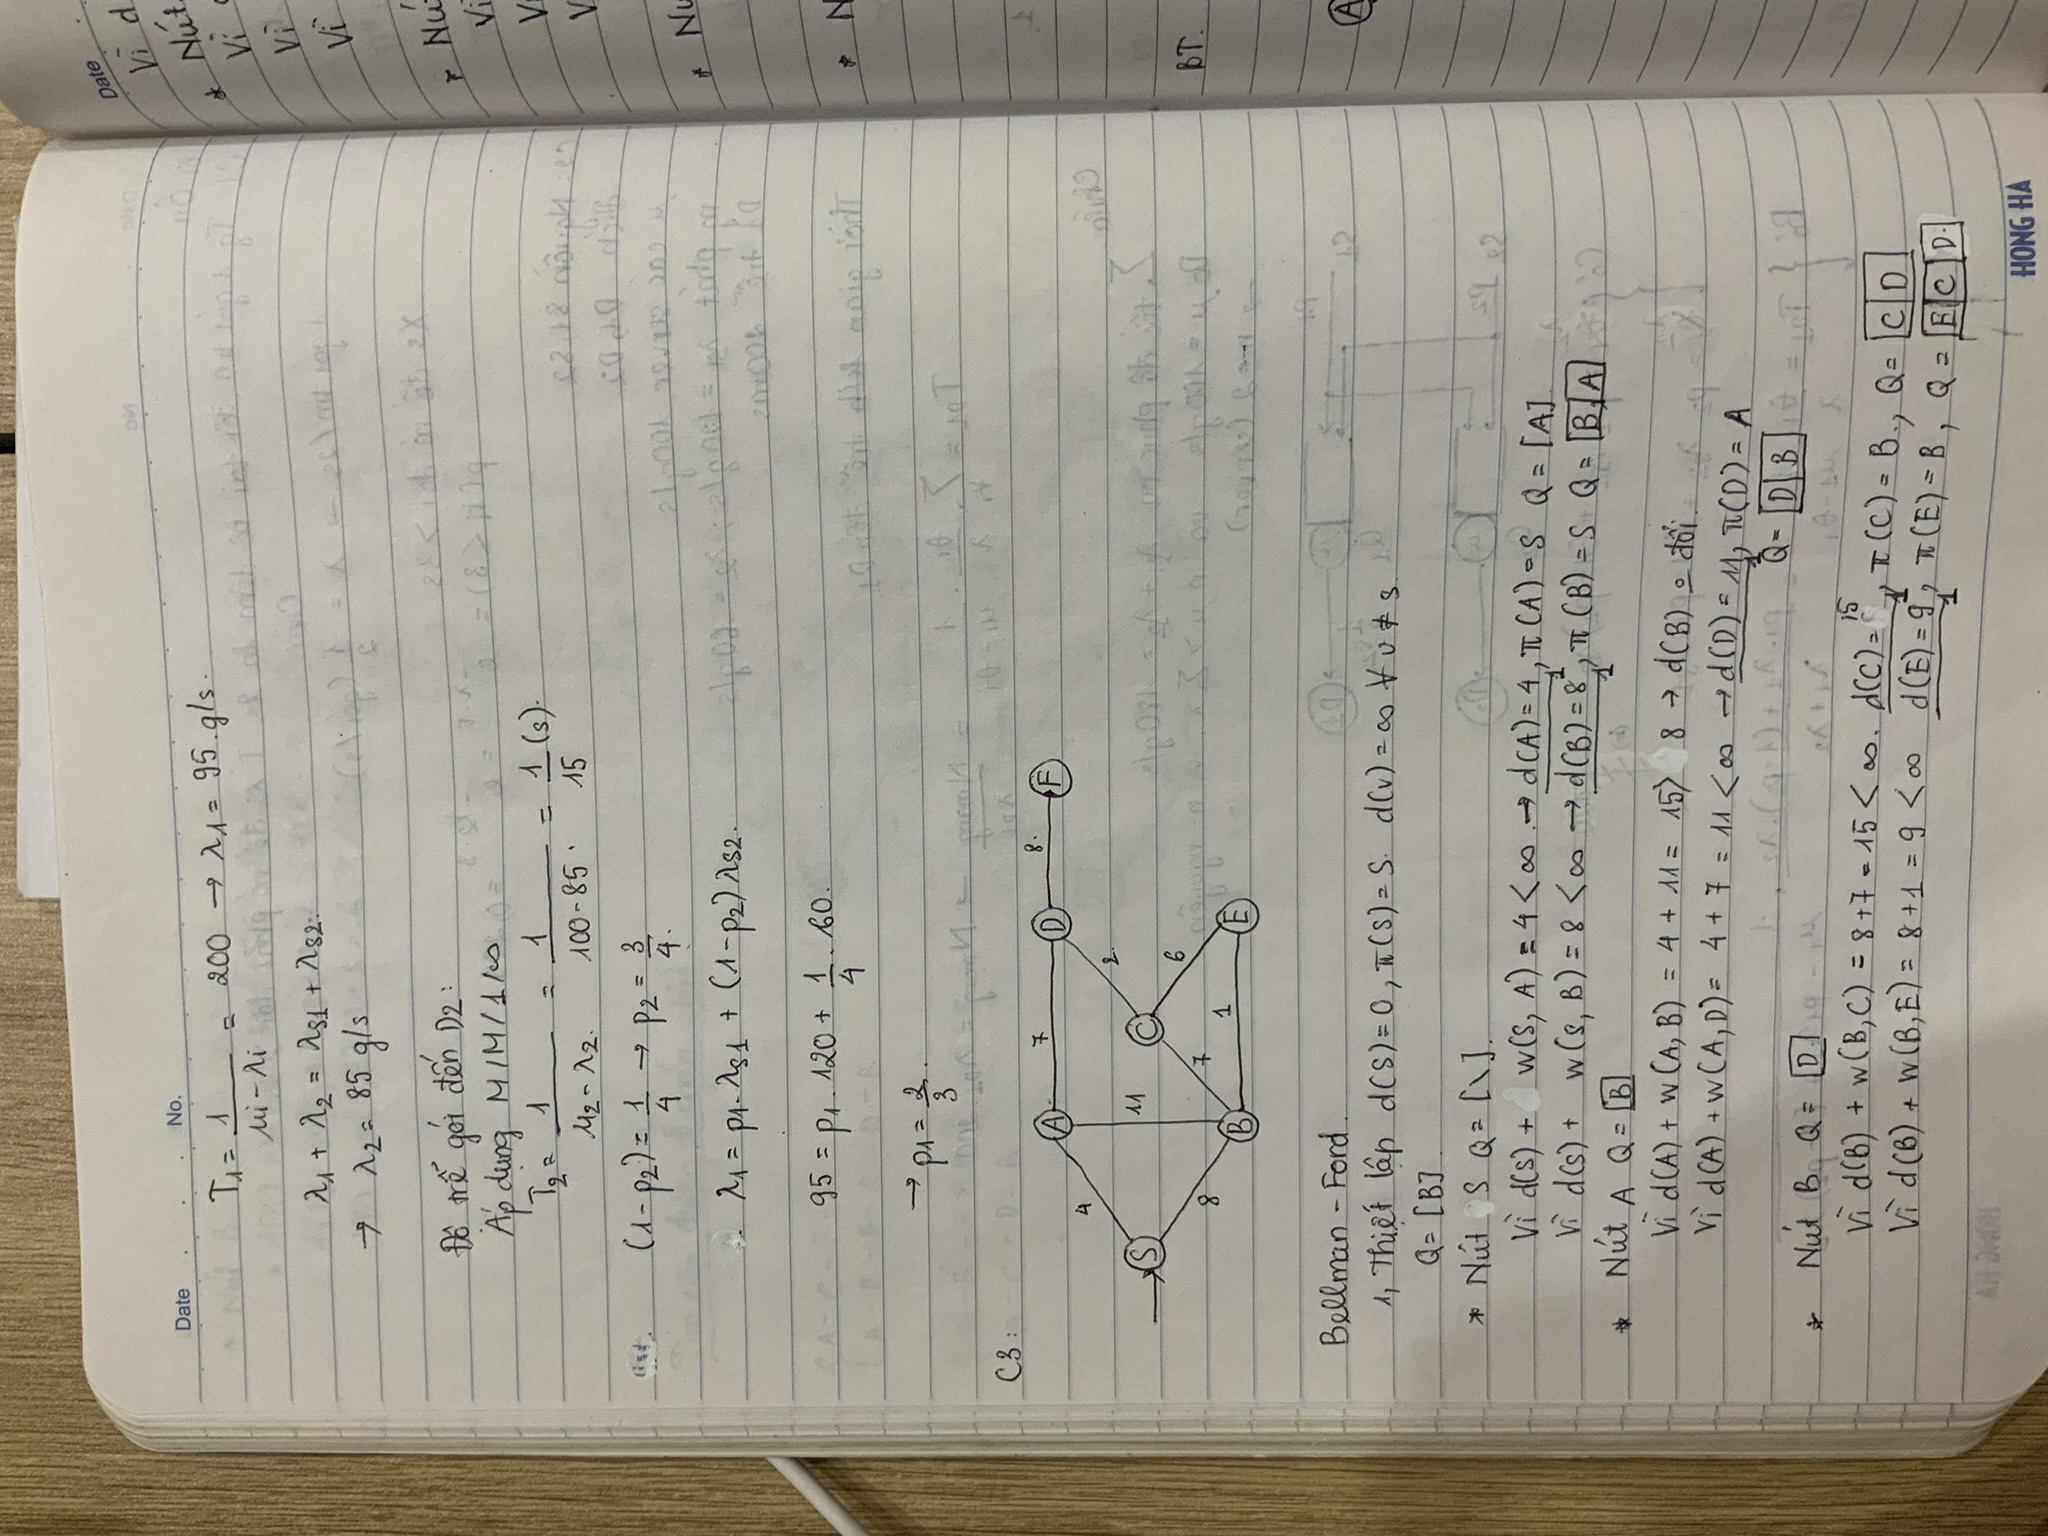 Date No.
T1 = 1/(μi - λi) = 200 → λ1 = 95 g/s.
λ1 + λ2 = λS1 + λS2.
→ λ2 = 85 g/s
Độ trễ gói đến D2:
Áp dụng M/M/1/∞
T2 = 1/(μ2 - λ2.) = 1/(100-85.) = 1/15 (s).
(1-p2) = 1/4 → p2 = 3/4.
λ1 = p1.λS1 + (1-p2)λS2.
95 = p1. 120 + 1/4 . 60.
→ p1 = 2/3.
C3:
A 7 D 8. F
4 2.
S 11 C
8 7 6
B 1 E
Bellman - Ford.
1, Thiết lập d(S)=0, π(S)=S. d(v)=∞ ∀ v ≠ s.
Q= [B].
* Nút S Q = [\].
Vì d(S) + w(S, A) = 4 < ∞ → d(A)=4, π(A)=S Q = [A].
1
Vì d(S) + w(S, B) = 8 < ∞ → d(B)=8, π(B)=S Q = B A
1
* Nút A Q= B
Vì d(A) + w(A, B) = 4 + 11 = 15 > 8 → d(B) o đổi.
Vì d(A) + w(A,D) = 4 + 7 = 11 < ∞ → d(D) = 11, π(D) = A
1
Q= D B
* Nút B Q = D
Vì d(B) + w(B,C) = 8+7 = 15 < ∞. d(C)= 15, π(C) = B., Q= C D
1
Vì d(B) + w(B,E) = 8+1 = 9 < ∞ d(E)=9, π(E)=B, Q = E C D.
1
HONG HA
Date
Vì d
* Nút
Vì
Vì
Vì
* Nú
Vì
Vì
V
* Nu
* N
BT.
A